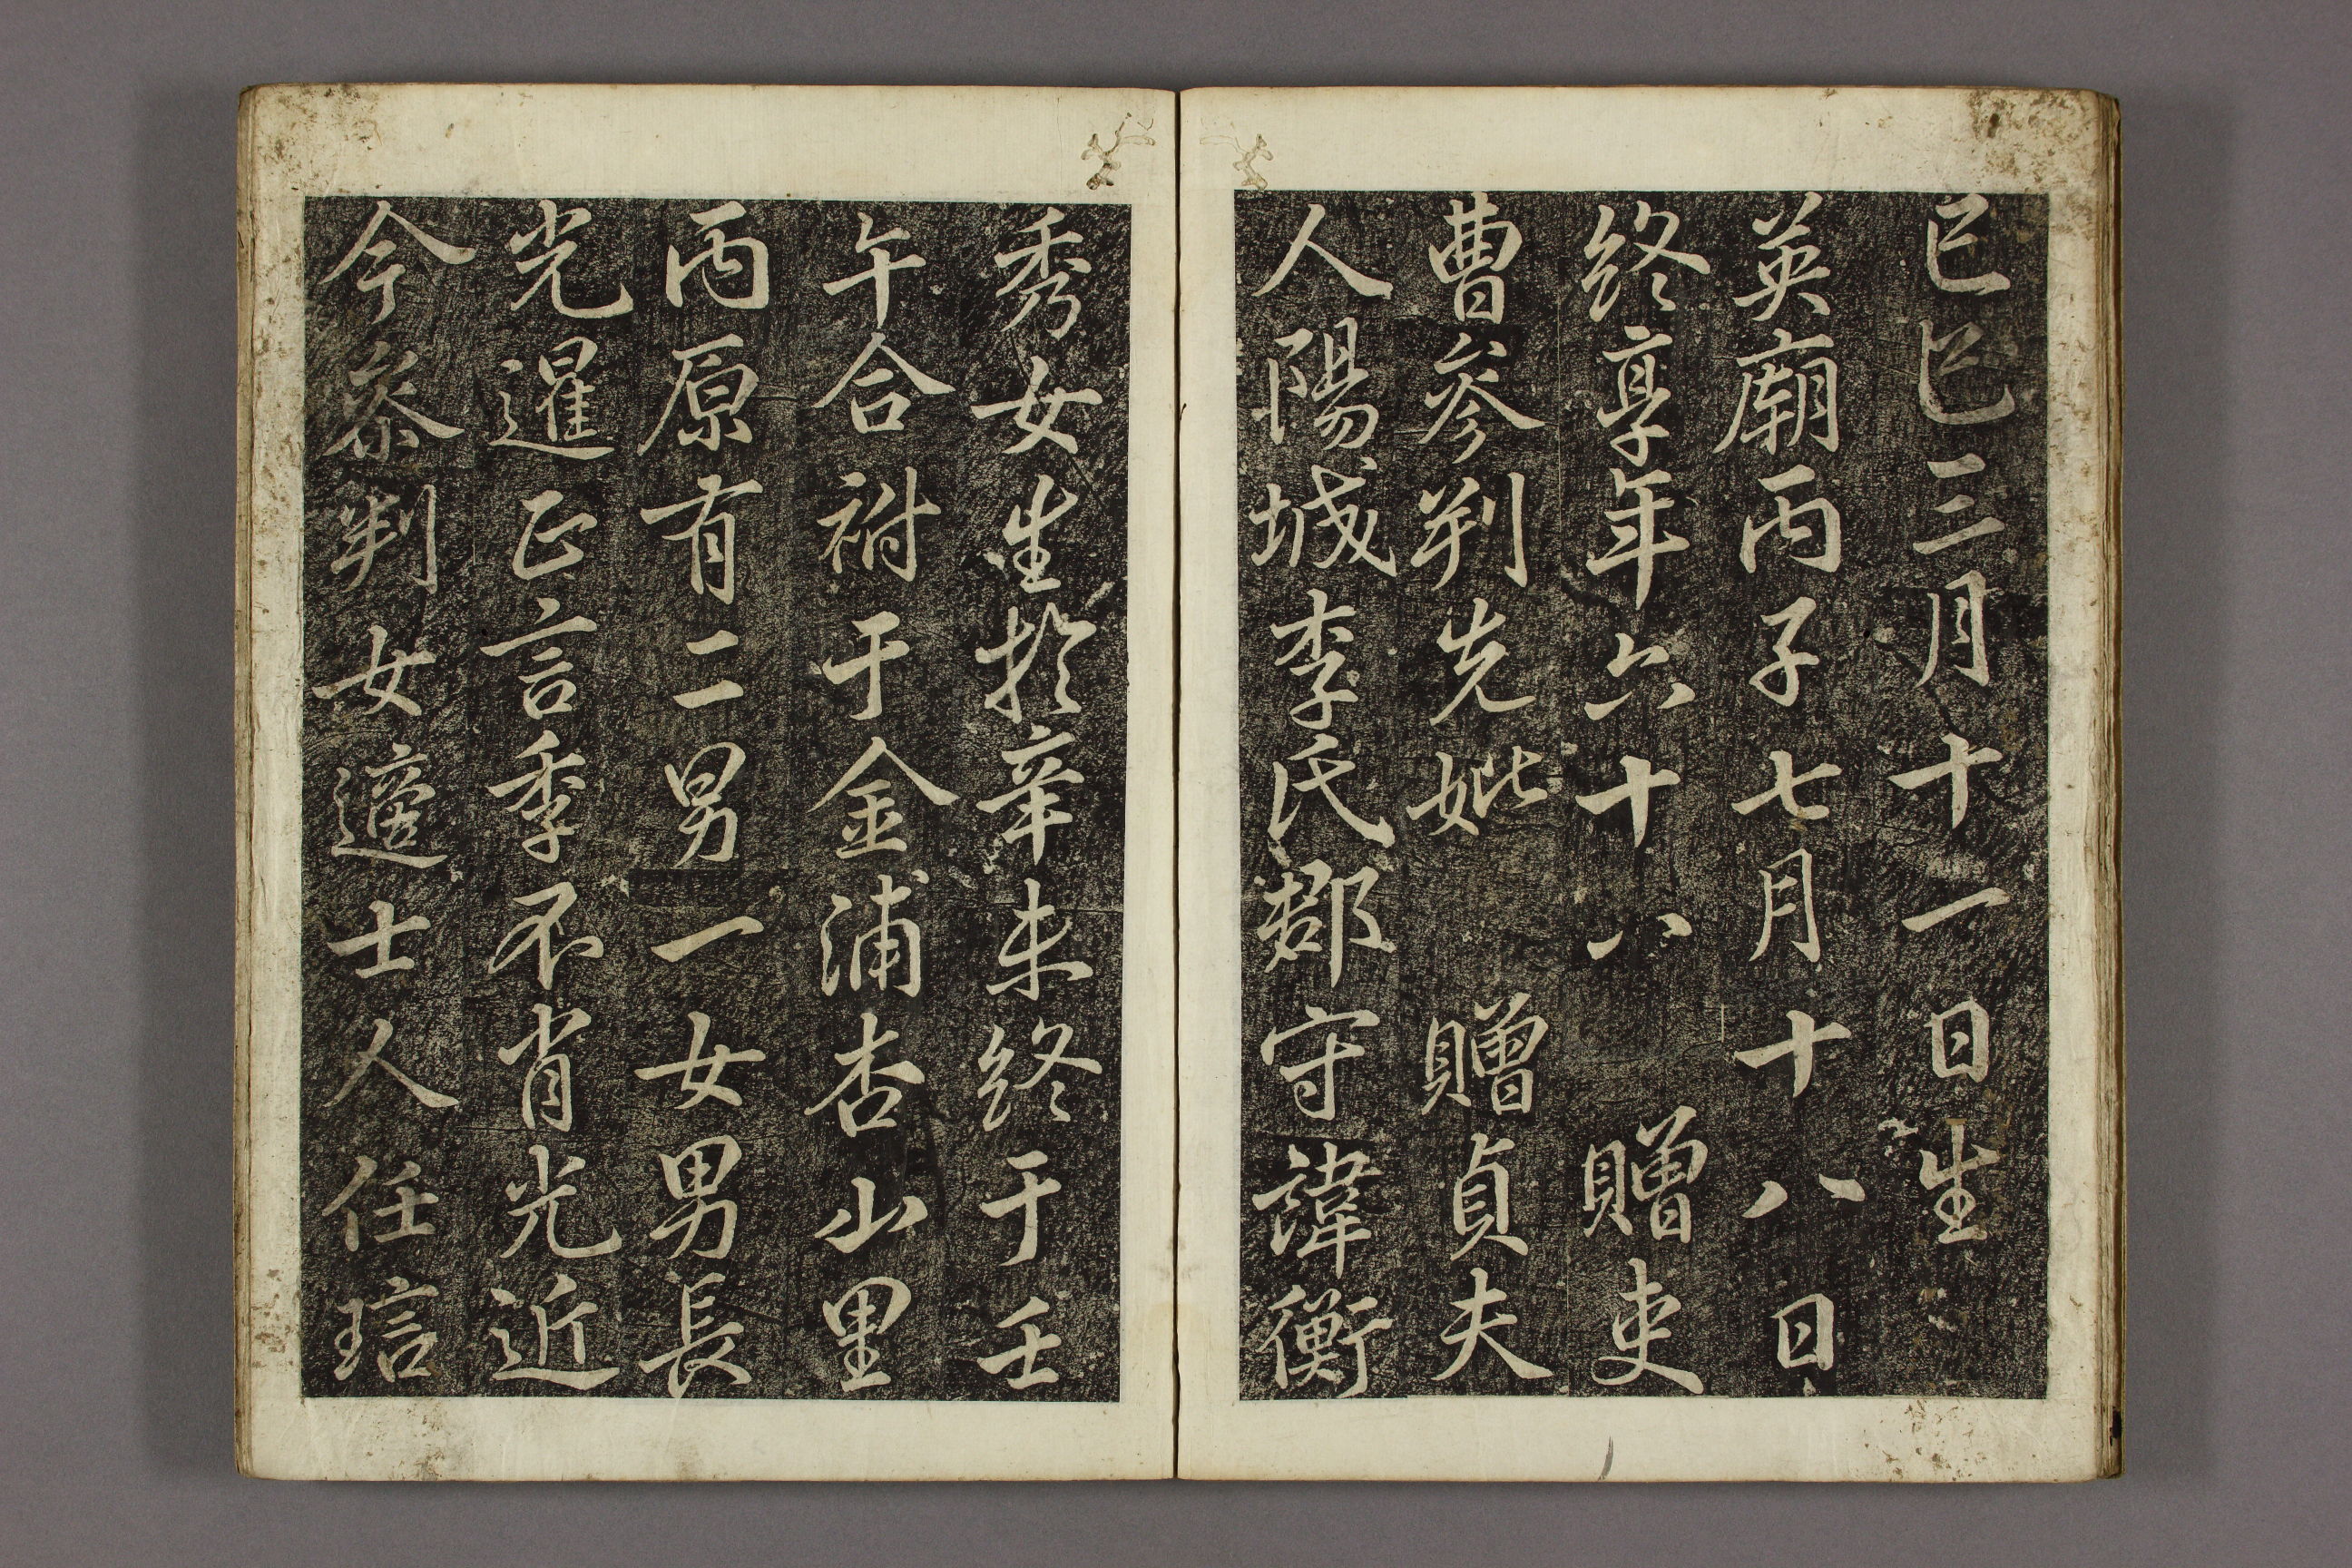 己巳三月十一日生
英廟丙子七月十八日
終享年六十八贈吏
曹參判先妣贈貞夫
人陽城李氏郡守諱衡
秀女生於辛未終于壬
午合祔于金浦杏山里
丙原有二男一女男長
光暹正言季不肖光近
今參判女適士人任琂